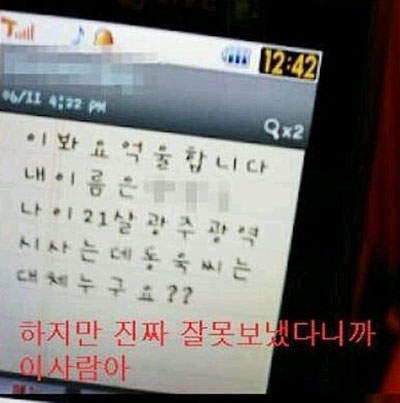 12:42
06/11 4:22 PM
x2
이봐요억울합니다
내이름은
나이21살광주광역
시사는데동욱씨는
대체누구요??
하지만 진짜 잘못보냈다니까
이사람아